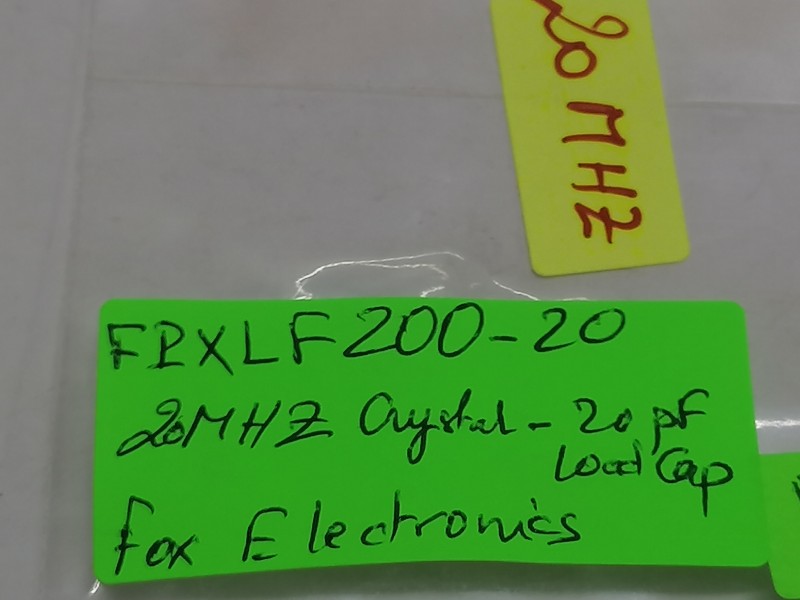 20 MHZ
FPXLF200-20
20MHZ Crystal - 20 pF
Load Cap
Fox Electronics